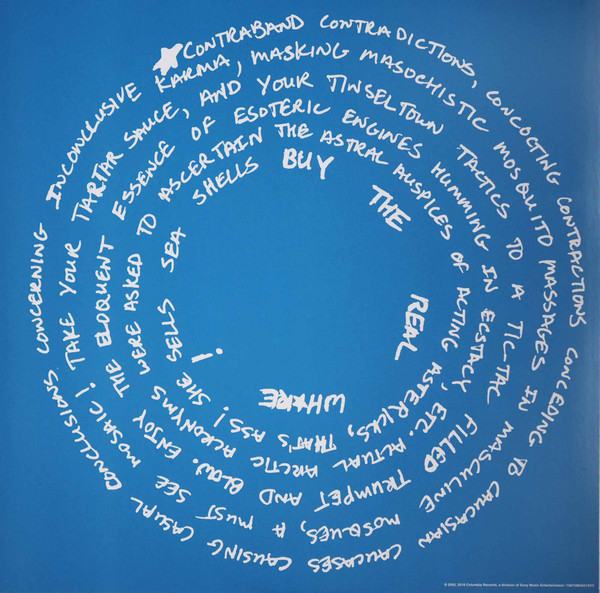 ★CONTRABAND CONTRADICTIONS, CONCOCTING CONTRACTIONS CONCEDING TO CAUCASIAN CAUCASES CAUSING CASUAL CONCLUSIONS CONCERNING INCONCLUSIVE
KARMA, MASKING MASOCHISTIC MOSQUITO MASSAGES IN MASCULINE MOSQUES, A MUST SEE MOSAIC! TAKE YOUR TARTAR SAUCE,
AND YOUR TINSELTOWN TACTICS TO A TIC-TAC FILLED TRUMPET AND BLOW. ENJOY THE ELOQUENT ESSENCE
OF ESOTERIC ENGINES HUMMING IN ECSTACY, ETC. ACTUAL ARCTIC ACRONYMS WERE ASKED TO ASCERTAIN
THE ASTRAL AUSPICES OF ACTING ASTERICKS, THAT'S ASS! SHE SELLS SEA SHELLS
BUY THE REAL WH★RE!
Columbia Records, a division of Sony Music Entertainment